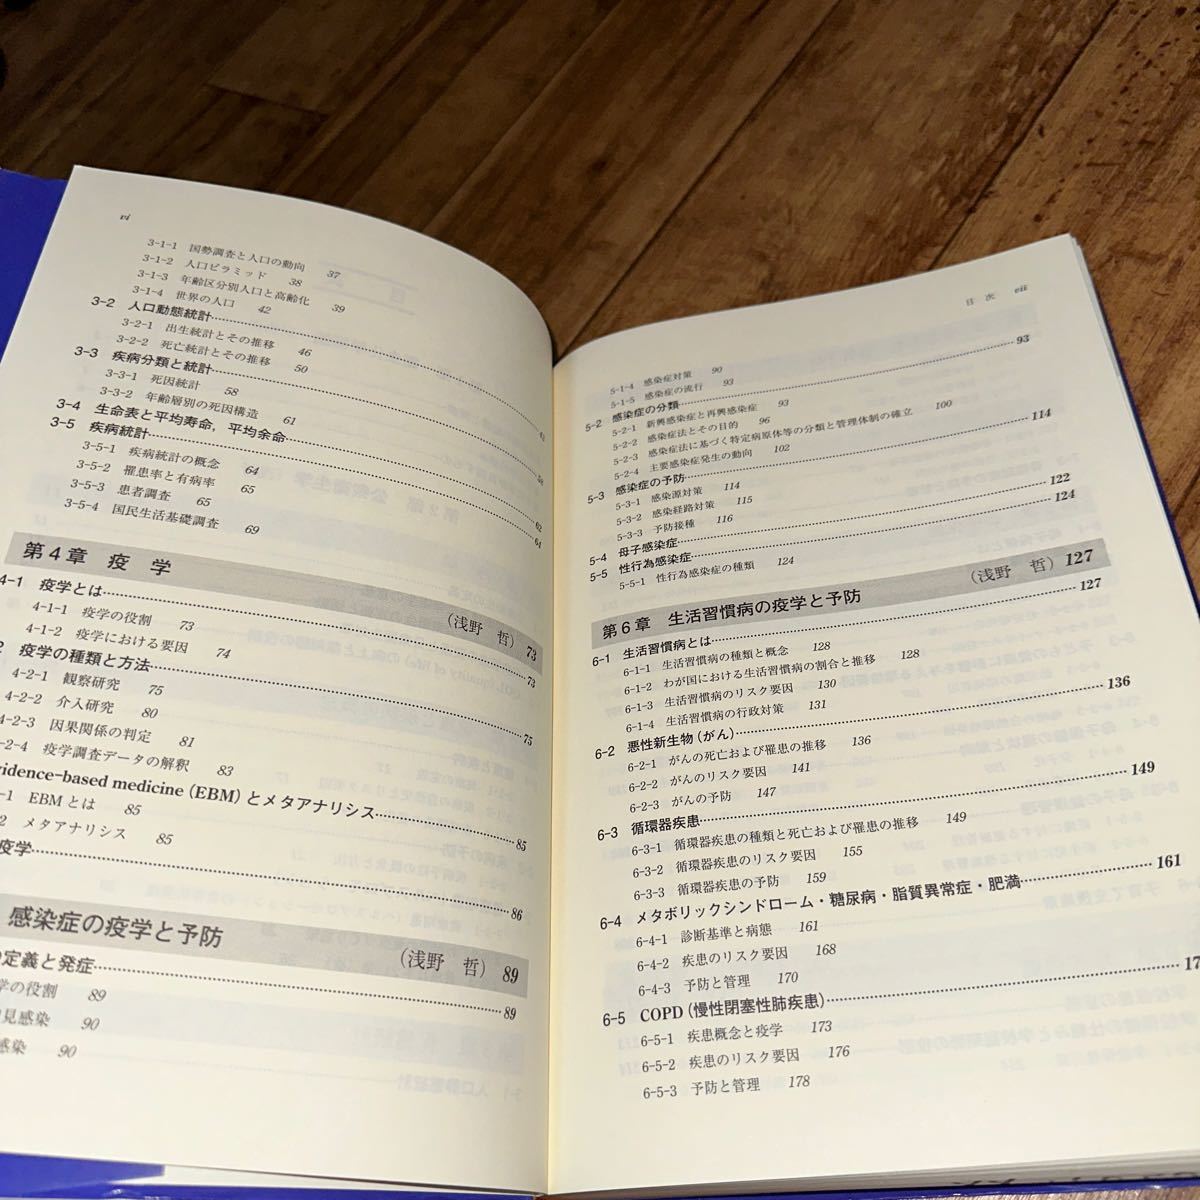 vi
3-1-1 国勢調査と人口の動向 37
3-1-2 人口ピラミッド 38
3-1-3 年齢区分別人口と高齢化 39
3-1-4 世界の人口 42
3-2 人口動態統計
3-2-1 出生統計とその推移 46
3-2-2 死亡統計とその推移 50
3-3 疾病分類と統計
3-3-1 死因統計 58
3-3-2 年齢層別の死因構造 61
3-4 生命表と平均寿命，平均余命 62
3-5 疾病統計 64
3-5-1 疾病統計の概念 64
3-5-2 罹患率と有病率 65
3-5-3 患者調査 65
3-5-4 国民生活基礎調査 69
第4章 疫 学 (浅野 哲) 73
4-1 疫学とは 73
4-1-1 疫学の役割 73
4-1-2 疫学における要因 74
2 疫学の種類と方法 75
4-2-1 観察研究 75
4-2-2 介入研究 80
4-2-3 因果関係の判定 81
2-4 疫学調査データの解釈 83
vidence-based medicine (EBM) とメタアナリシス 85
-1 EBM とは 85
2 メタアナリシス 85
疫学 86
感染症の疫学と予防 (浅野 哲) 89
定義と発症 89
学の役割 89
見感染 90
感染 90
目 次 vii
5-1-4 感染症対策 90
5-1-5 感染症の流行 93
5-2 感染症の分類 93
5-2-1 新興感染症と再興感染症 93
5-2-2 感染症法とその目的 96
5-2-3 感染症法に基づく特定病原体等の分類と管理体制の確立 100
5-2-4 主要感染症発生の動向 102
5-3 感染症の予防 114
5-3-1 感染源対策 114
5-3-2 感染経路対策 115
5-3-3 予防接種 116
5-4 母子感染症 122
5-5 性行為感染症 124
5-5-1 性行為感染症の種類 124
第6章 生活習慣病の疫学と予防 (浅野 哲) 127
6-1 生活習慣病とは 127
6-1-1 生活習慣病の種類と概念 128
6-1-2 わが国における生活習慣病の割合と推移 128
6-1-3 生活習慣病のリスク要因 130
6-1-4 生活習慣病の行政対策 131
6-2 悪性新生物 (がん) 136
6-2-1 がんの死亡および罹患の推移 136
6-2-2 がんのリスク要因 141
6-2-3 がんの予防 147
6-3 循環器疾患 149
6-3-1 循環器疾患の種類と死亡および罹患の推移 149
6-3-2 循環器疾患のリスク要因 155
6-3-3 循環器疾患の予防 159
6-4 メタボリックシンドローム・糖尿病・脂質異常症・肥満 161
6-4-1 診断基準と病態 161
6-4-2 疾患のリスク要因 168
6-4-3 予防と管理 170
6-5 COPD (慢性閉塞性肺疾患) 17
6-5-1 疾患概念と疫学 173
6-5-2 疾患のリスク要因 176
6-5-3 予防と管理 178